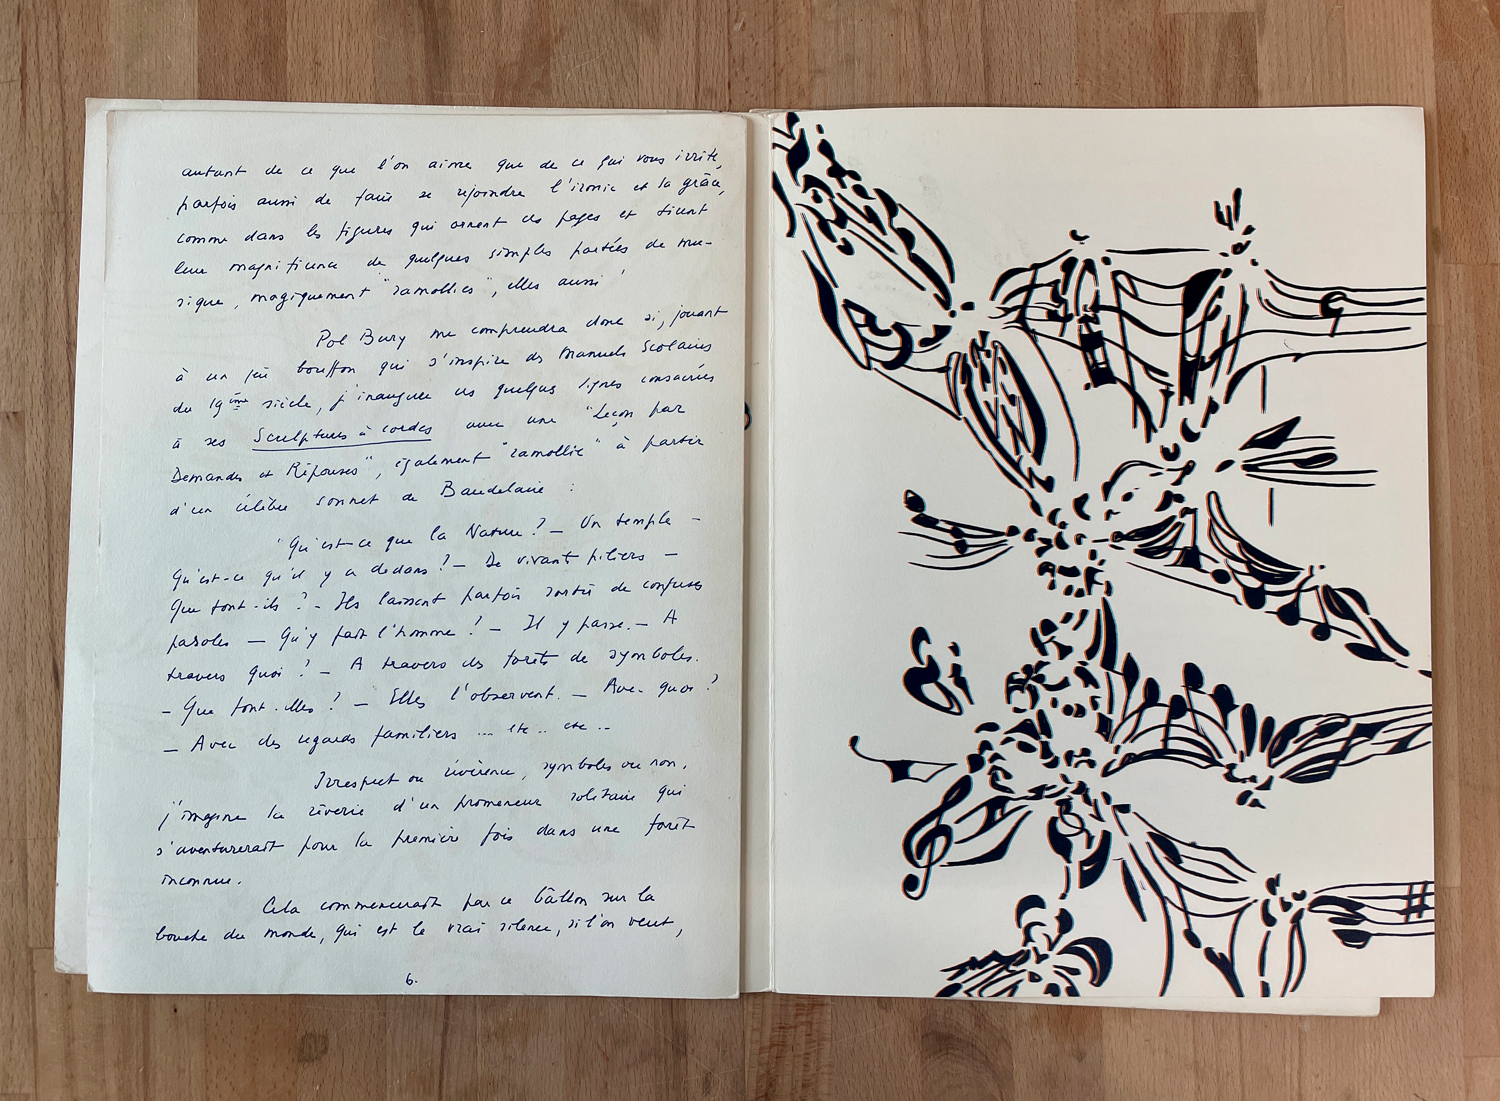 autant de ce que l'on aime que de ce qui vous irrite,
parfois aussi de faire se rejoindre l'ironie et la grâce,
comme dans les figures qui ornent ces pages et tirent
leur magnificence de quelques simples portées de mu-
sique, magiquement "ramollies", elles aussi !
Pol Bury me comprendra donc si, jouant
à un jeu bouffon qui s'inspire des Manuels Scolaires
du 19ème siècle, j'inaugure ces quelques lignes consacrées
à ses Sculptures à cordes avec une "Leçon par
Demandes et Réponses", également "ramollie" à partir
d'un célèbre sonnet de Baudelaire :
"Qu'est-ce que la Nature ? — Un temple —
Qu'est-ce qu'il y a dedans ? — De vivants piliers —
Que font-ils ? — Ils laissent parfois sortir de confuses
paroles — Qu'y fait l'homme ? — Il y passe. — A
travers quoi ? — A travers des forêts de symboles.
— Que font-elles ? — Elles l'observent. — Avec quoi ?
— Avec des regards familiers ... etc .. etc ..
Irrespect ou révérence, symboles ou non,
j'imagine la rêverie d'un promeneur solitaire qui
s'aventurerait pour la première fois dans une forêt
inconnue.
Cela commencerait par ce bâillon sur la
bouche du monde, qui est le vrai silence, si l'on veut,
6.